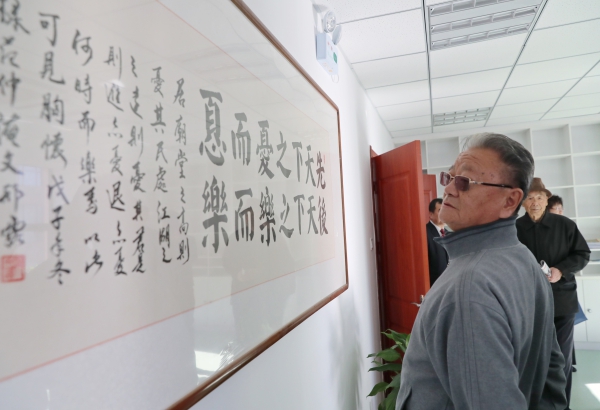 先天下之憂而憂
後天下之樂而樂
居廟堂之高則
憂其民處江湖之
遠則憂其君是
則進亦憂退亦憂
何時而樂焉以此
可見胸懷戊子年冬
范仲淹文邢雲